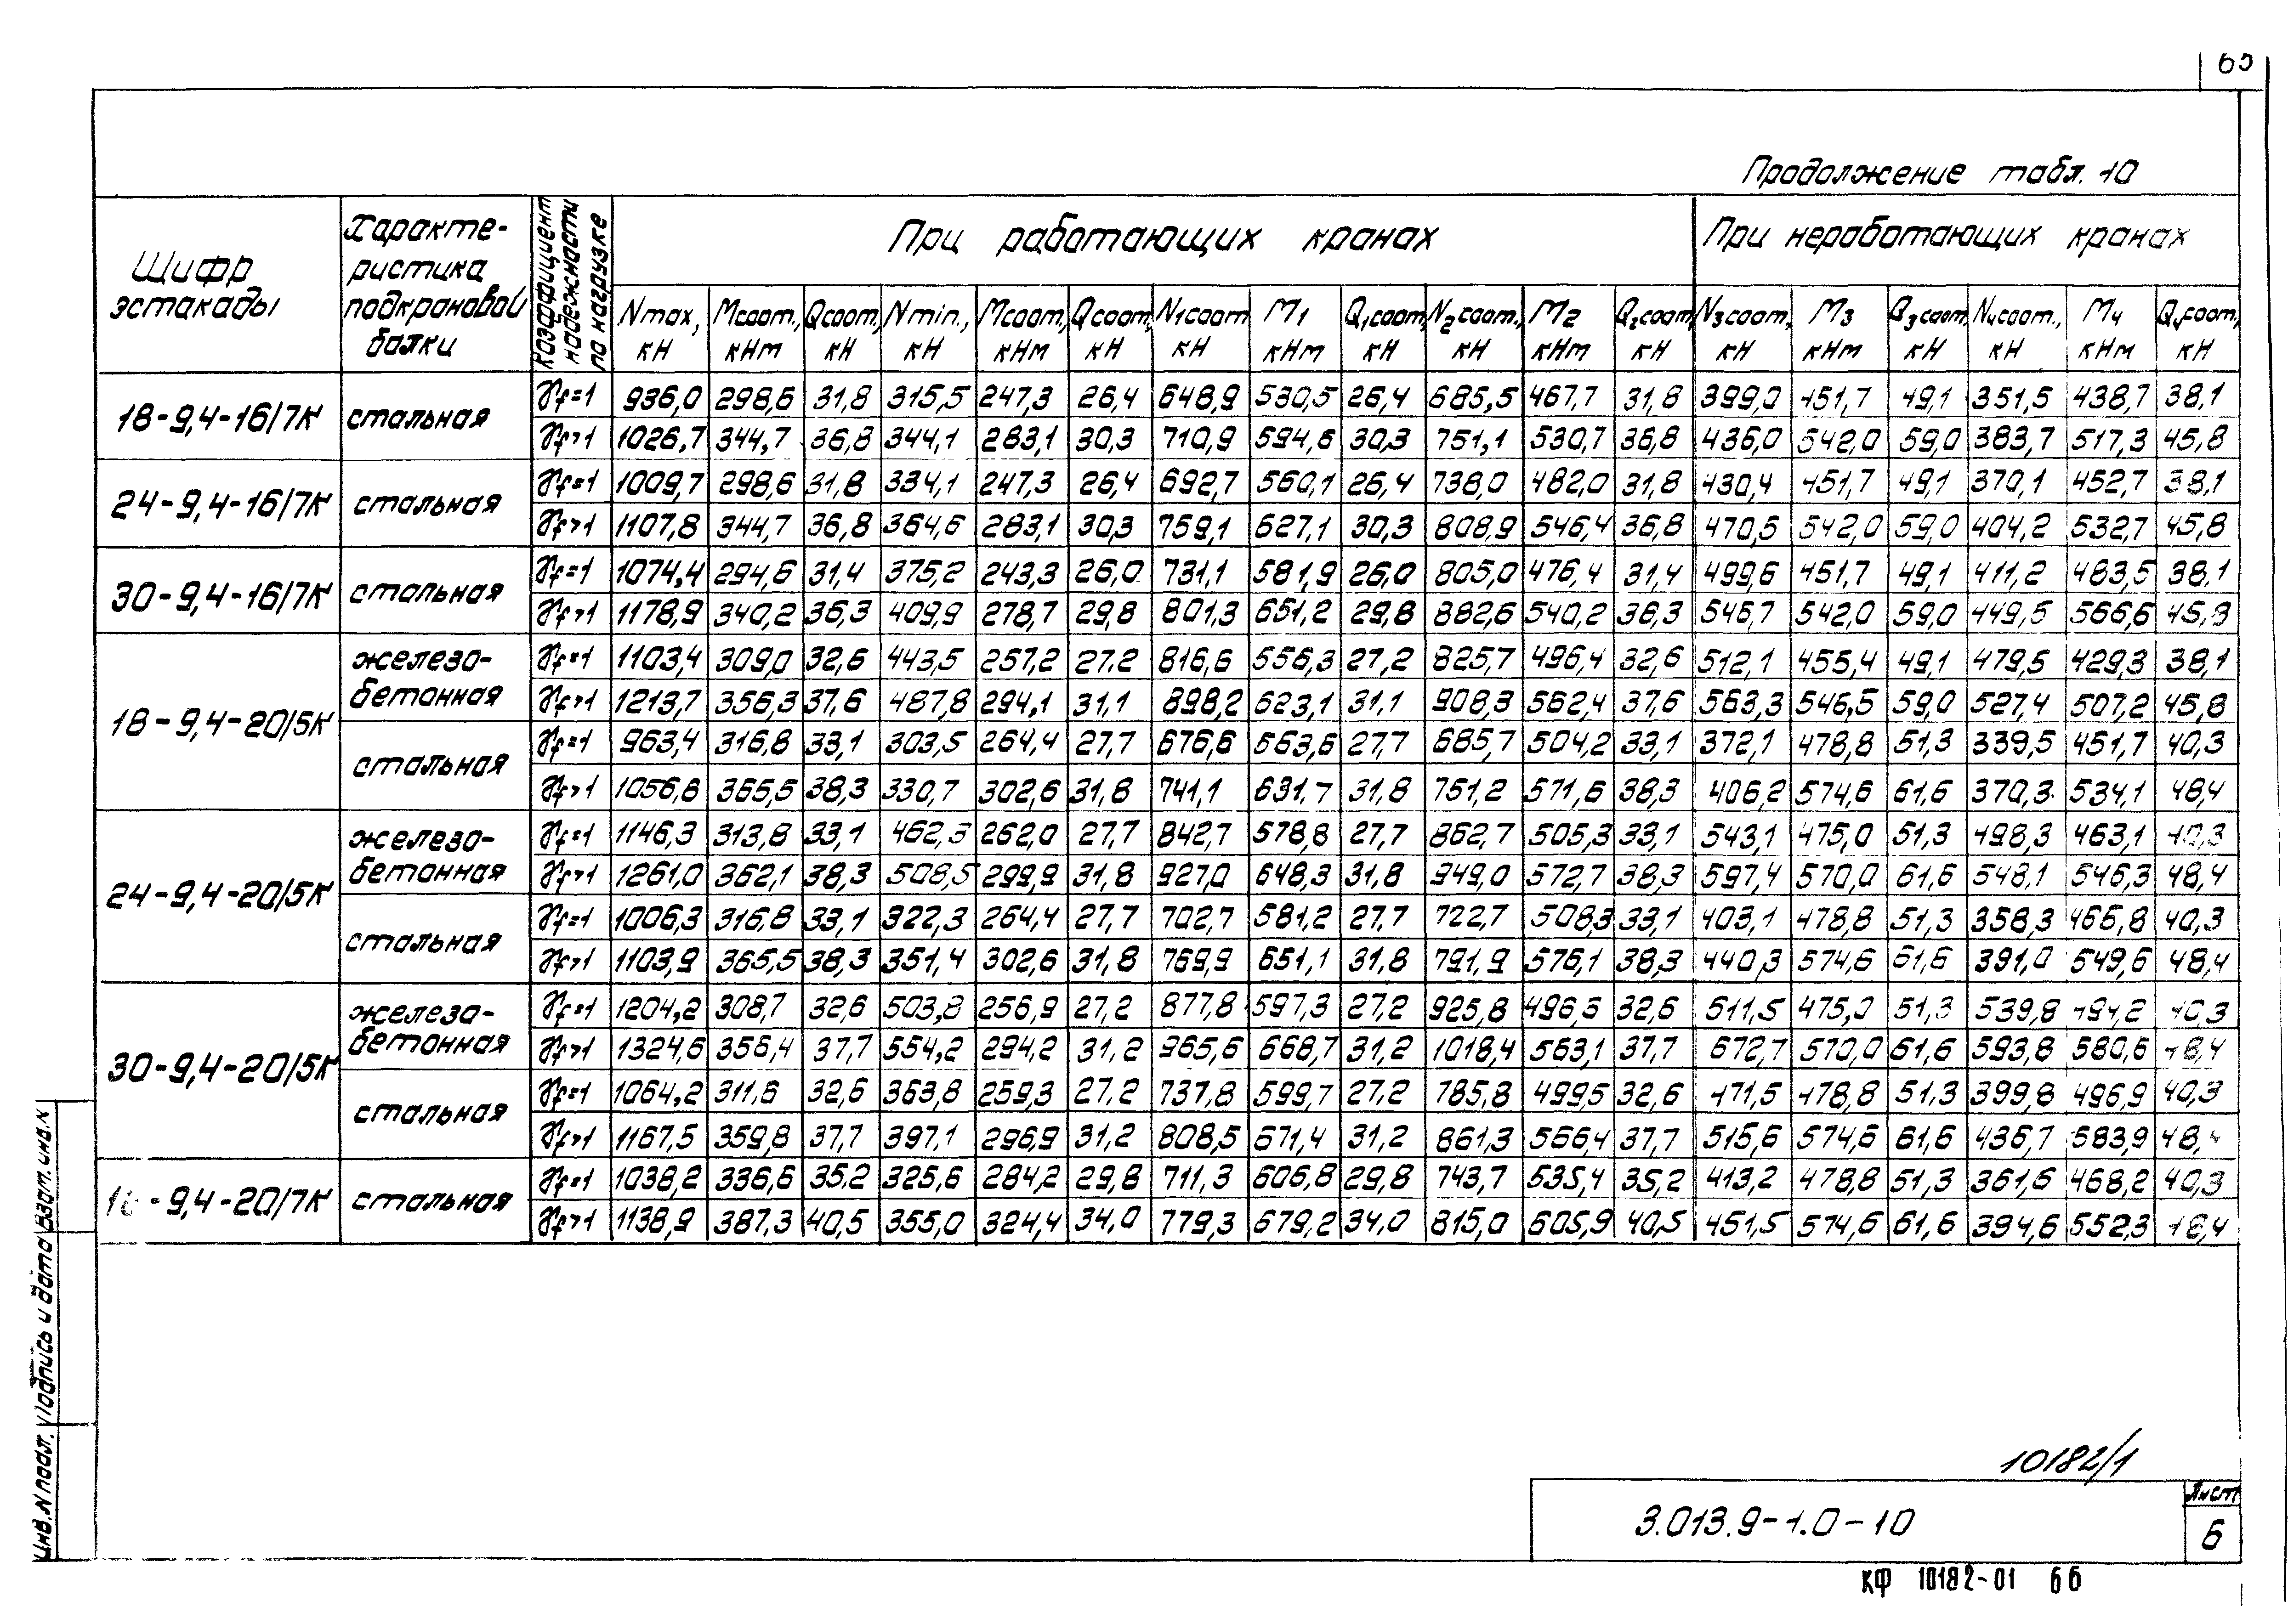 Продолжение табл. 10
Шифр эстакады
Характеристика подкрановой балки
Коэффициент надежности по нагрузке
При работающих кранах
При неработающих кранах
Nmax, кН Mсоот., кНм Qсоот, кН Nmin., кН Mсоот., кНм Qсоот, кН N1соот кН M1 кНм Q1соот, кН N2соот., кН M2 кНм Q2соот, кН N3соот., кН M3 кНм Q3соот, кН N4соот., кН M4 кНм Q4соот, кН
18-9,4-16/7К стальная
γf=1 936,0 298,6 31,8 315,5 247,3 26,4 648,9 530,5 26,4 685,5 467,7 31,8 399,0 451,7 49,1 351,5 438,7 38,1
γf>1 1026,7 344,7 36,8 344,1 283,1 30,3 710,9 594,6 30,3 751,1 530,7 36,8 436,0 542,0 59,0 383,7 517,3 45,8
24-9,4-16/7К стальная
γf=1 1009,7 298,6 31,8 334,1 247,3 26,4 692,7 560,1 26,4 738,0 482,0 31,8 430,4 451,7 49,1 370,1 452,7 38,1
γf>1 1107,8 344,7 36,8 364,6 283,1 30,3 759,1 627,1 30,3 808,9 546,4 36,8 470,5 542,0 59,0 404,2 532,7 45,8
30-9,4-16/7К стальная
γf=1 1074,4 294,6 31,4 375,2 243,3 26,0 731,1 581,9 26,0 805,0 476,4 31,4 499,6 451,7 49,1 411,2 483,5 38,1
γf>1 1178,9 340,2 36,3 409,9 278,7 29,8 801,3 651,2 29,8 882,6 540,2 36,3 546,7 542,0 59,0 449,5 566,6 45,8
18-9,4-20/5К
железобетонная
γf=1 1103,4 309,0 32,6 443,5 257,2 27,2 816,6 556,3 27,2 825,7 496,4 32,6 512,1 455,4 49,1 479,5 429,3 38,1
γf>1 1213,7 356,3 37,6 487,8 294,1 31,1 898,2 623,1 31,1 908,3 562,4 37,6 563,3 546,5 59,0 527,4 507,2 45,8
стальная
γf=1 963,4 316,8 33,1 303,5 264,4 27,7 676,6 563,6 27,7 685,7 504,2 33,1 372,1 478,8 51,3 339,5 451,7 40,3
γf>1 1056,8 365,5 38,3 330,7 302,6 31,8 741,1 631,7 31,8 751,2 571,6 38,3 406,2 574,6 61,6 370,3 534,1 48,4
24-9,4-20/5К
железобетонная
γf=1 1146,3 313,8 33,1 462,3 262,0 27,7 842,7 578,8 27,7 862,7 505,3 33,1 543,1 475,0 51,3 498,3 463,1 40,3
γf>1 1261,0 362,1 38,3 508,5 299,9 31,8 927,0 648,3 31,8 949,0 572,7 38,3 597,4 570,0 61,6 548,1 546,3 48,4
стальная
γf=1 1006,3 316,8 33,1 322,3 264,4 27,7 702,7 581,2 27,7 722,7 508,3 33,1 403,1 478,8 51,3 358,3 466,8 40,3
γf>1 1103,9 365,5 38,3 351,4 302,6 31,8 769,9 651,1 31,8 791,9 576,1 38,3 440,3 574,6 61,6 391,0 549,6 48,4
30-9,4-20/5К
железобетонная
γf=1 1204,2 308,7 32,6 503,8 256,9 27,2 877,8 597,3 27,2 925,8 496,5 32,6 611,5 475,0 51,3 539,8 494,2 40,3
γf>1 1324,6 356,4 37,7 554,2 294,2 31,2 965,6 668,7 31,2 1018,4 563,1 37,7 672,7 570,0 61,6 593,8 580,6 48,4
стальная
γf=1 1064,2 311,6 32,6 363,8 259,3 27,2 737,8 599,7 27,2 785,8 499,5 32,6 471,5 478,8 51,3 399,8 496,9 40,3
γf>1 1167,5 359,8 37,7 397,1 296,9 31,2 808,5 671,4 31,2 861,3 566,4 37,7 515,6 574,6 61,6 436,7 583,9 48,4
18-9,4-20/7К стальная
γf=1 1038,2 336,6 35,2 325,6 284,2 29,8 711,3 606,8 29,8 743,7 535,4 35,2 413,2 478,8 51,3 361,6 468,2 40,3
γf>1 1138,9 387,3 40,5 355,0 324,4 34,0 779,3 679,2 34,0 815,0 605,9 40,5 451,5 574,6 61,6 394,6 552,3 48,4
Инв. N подл. Подпись и дата Взам. инв. N
10182/1
3.013.9-1.0-10
Лист
6
КФ 10182-01 66